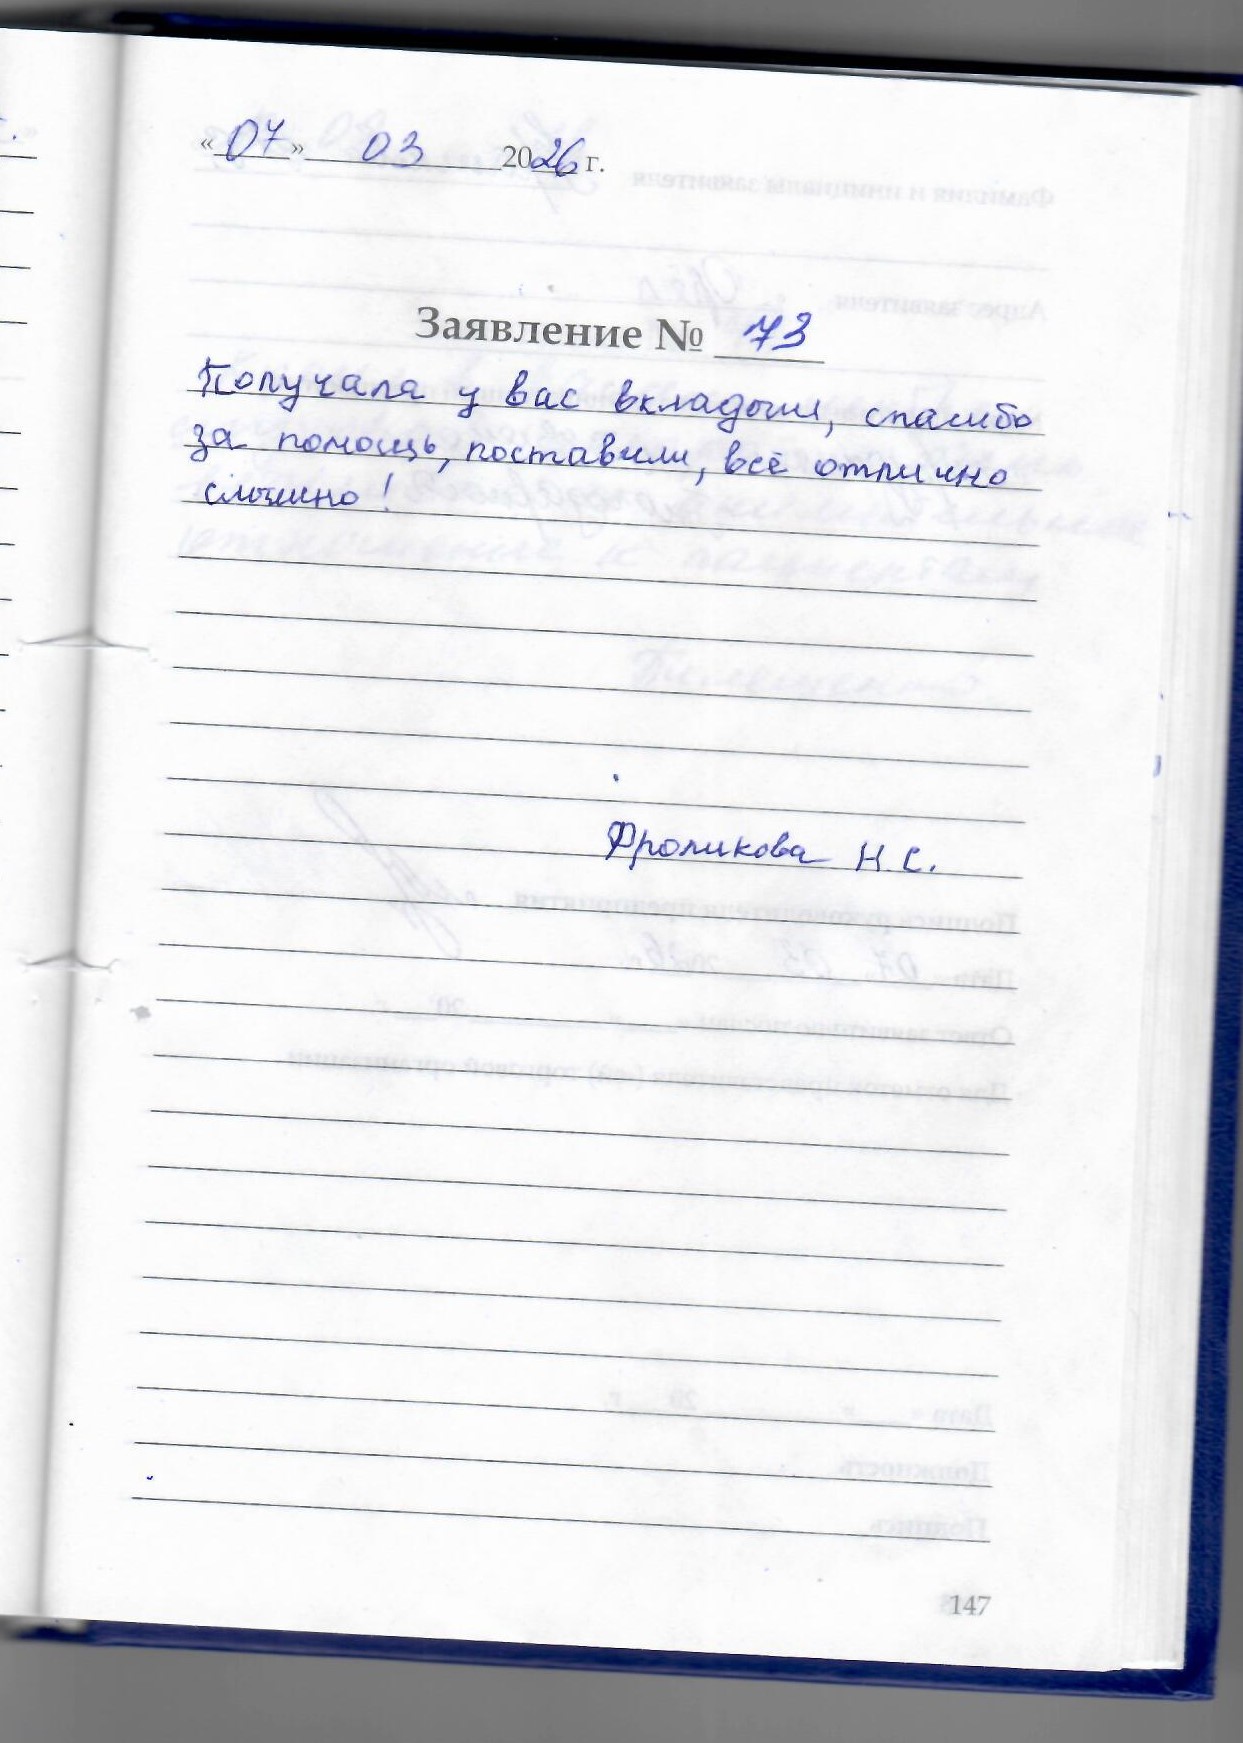 «07» 03 2026 г.
Заявление № 73
Получала у вас вкладыши, спасибо
за помощь, поставили, всё отлично
слышно!
Фроликова Н.С.
147